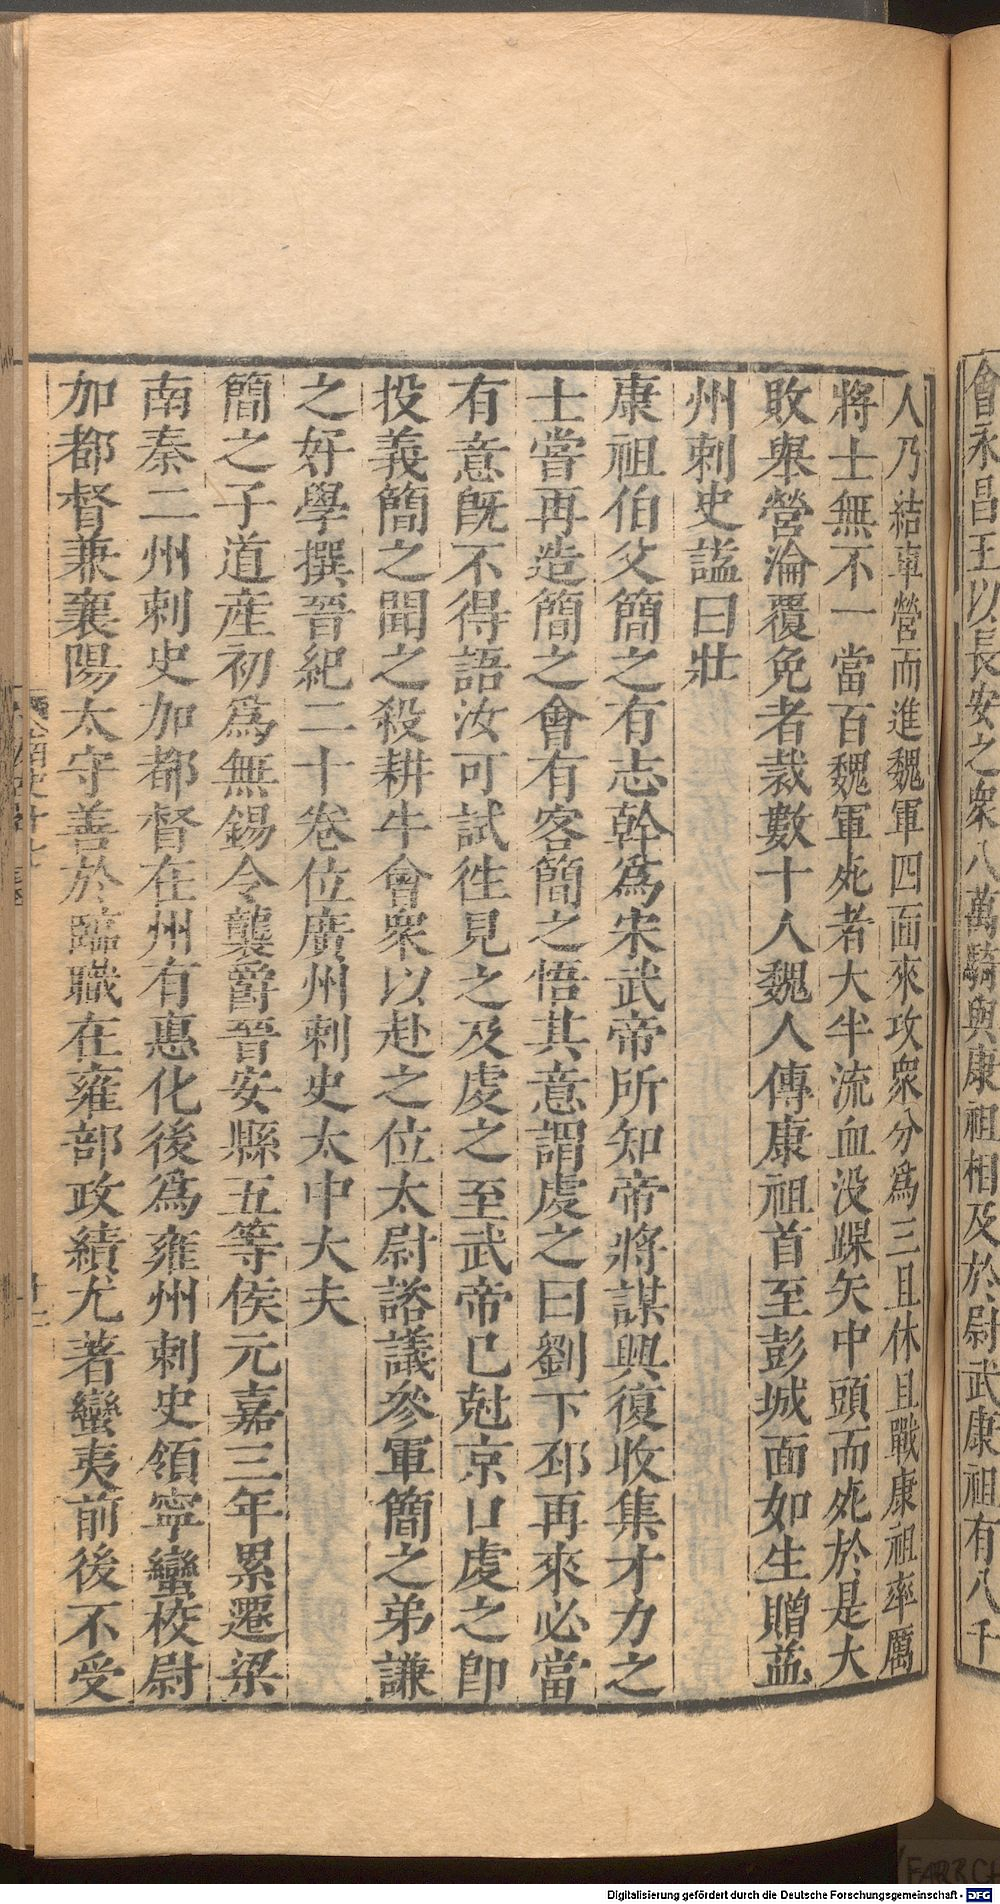 會永昌王以長安之衆八萬騎與康祖相及於尉武康祖有八千
人乃結車營而進魏軍四面來攻衆分爲三且休且戰康祖率厲
將士無不一當百魏軍死者大半流血没踝矢中頭而死於是大
敗舉營淪覆免者裁數十人魏人傳康祖首至彭城面如生贈益
州刺史謚曰壯
康祖伯父簡之有志幹爲宋武帝所知帝將謀興復收集才力之
士嘗再造簡之會有客簡之悟其意謂虔之曰劉下邳再來必當
有意既不得語汝可試徃見之及虔之至武帝已尅京口虔之即
投義簡之聞之殺耕牛會衆以赴之位太尉諮議參軍簡之弟謙
之好學撰晉紀二十卷位廣州刺史太中大夫
簡之子道産初爲無錫令襲爵晉安縣五等侯元嘉三年累遷梁
南秦二州刺史加都督在州有惠化後爲雍州刺史領寧蠻校尉
加都督兼襄陽太守善於臨職在雍部政績尤著蠻夷前後不受
Digitalisierung gefördert durch die Deutsche Forschungsgemeinschaft - DFG